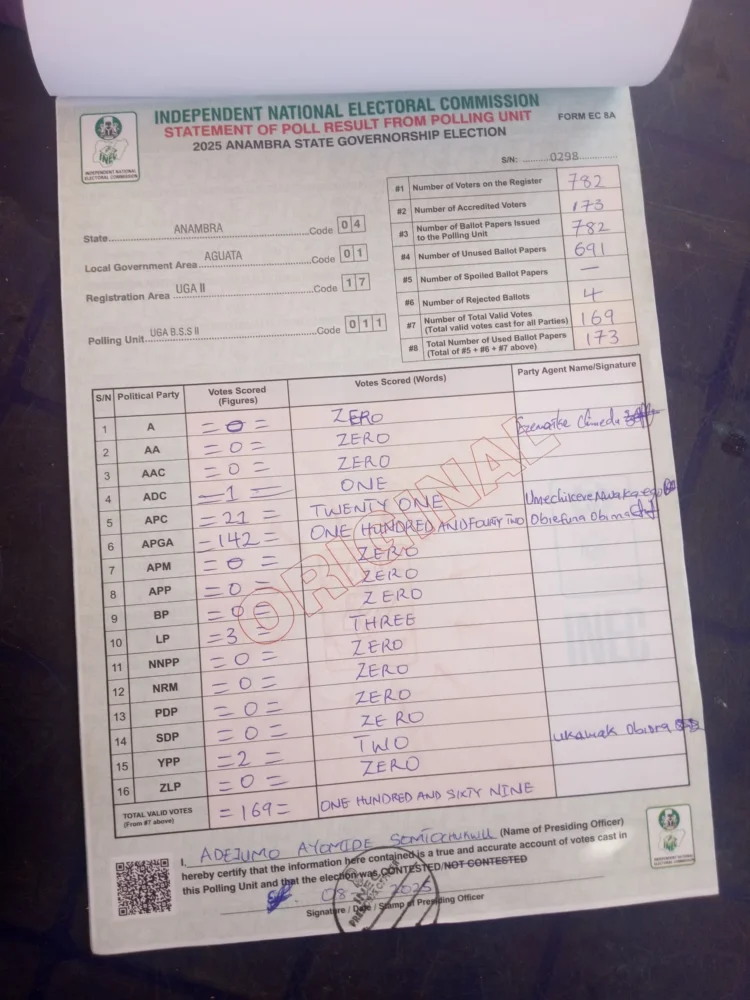 INDEPENDENT NATIONAL ELECTORAL COMMISSION
STATEMENT OF POLL RESULT FROM POLLING UNIT
FORM EC 8A
2025 ANAMBRA STATE GOVERNORSHIP ELECTION
INEC
INDEPENDENT NATIONAL ELECTORAL COMMISSION
S/N: 0298
State ANAMBRA Code 0 4
Local Government Area AGUATA Code 0 1
Registration Area UGA II Code 1 7
Polling Unit UGA B.S.S II Code 0 1 1
#1 Number of Voters on the Register 782
#2 Number of Accredited Voters 173
#3 Number of Ballot Papers Issued to the Polling Unit 782
#4 Number of Unused Ballot Papers 691
#5 Number of Spoiled Ballot Papers —
#6 Number of Rejected Ballots 4
#7 Number of Total Valid Votes (Total valid votes cast for all Parties) 169
#8 Total Number of Used Ballot Papers (Total of #5 + #6 + #7 above) 173
S/N Political Party Votes Scored (Figures) Votes Scored (Words) Party Agent Name/Signature
1 A =0= ZERO
2 AA =0= ZERO
3 AAC =0= ZERO
4 ADC =1= ONE
5 APC =21= TWENTY ONE
6 APGA =142= ONE HUNDRED AND FOURTY TWO Obiefuna Obinna
7 APM =0= ZERO
8 APP =0= ZERO
9 BP =0= ZERO
10 LP =3= THREE
11 NNPP =0= ZERO
12 NRM =0= ZERO
13 PDP =0= ZERO
14 SDP =0= ZERO
15 YPP =2= TWO
16 ZLP =0= ZERO
TOTAL VALID VOTES (From #7 above) =169= ONE HUNDRED AND SIXTY NINE
ORIGINAL
INEC
I, ADEJUMO AYOMIDE (Name of Presiding Officer)
hereby certify that the information here contained is a true and accurate account of votes cast in
this Polling Unit and that the election was CONTESTED/NOT CONTESTED
08 2025
Signature / Date / Stamp of Presiding Officer